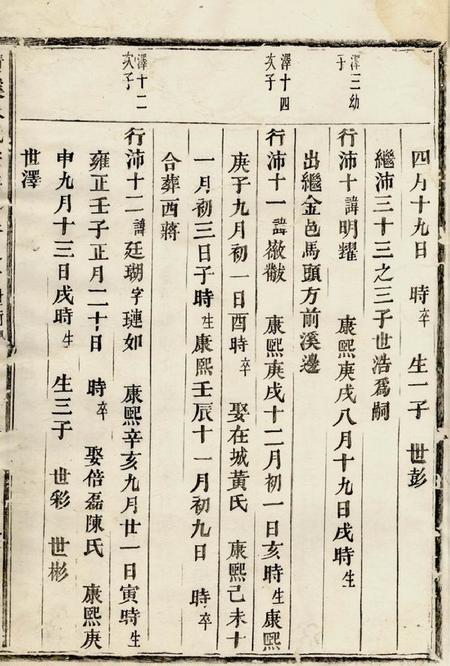 四月十九日 時卒 生一子 世彭
繼沛三十三之三子世浩爲嗣
澤三幼子
行沛十諱明耀 康熙庚戌八月十九日戌時生
出繼金邑馬頭方前溪邊
澤十四次子
行沛十一諱徽黻 康熙庚戌十二月初一日亥時生康熙
庚子九月初一日酉時卒 娶在城黃氏 康熙己未十
一月初三日子時生康熙壬辰十一月初九日 時卒
合葬西蔣
澤十二次子
行沛十二諱廷瑚字璉如 康熙辛亥九月廿一日寅時生
雍正壬子正月二十日 時卒 娶倍磊陳氏 康熙庚
申九月十三日戌時生 生三子 世彩 世彬
世澤